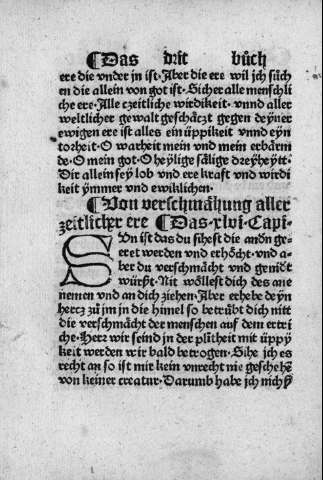 ¶Das drit bůch
ere die vnder jn ist·Aber die ere wil jch sůch
en die allein von got ist·Sicher alle menschli
che ere·Alle czeitliche wirdikeit·vnnd aller
weltlicher gewalt geschäczt gegen deyner
ewigen ere ist alles ein üppikeit vnnd eyn
torheit·O warheit mein vnd mein erbärm
de·O mein got·O heylige sälige dreyheytt·
Dir allein sey lob vnd ere kraft vnd wirdi
keit ymmer vnd ewiklichen·
¶Von verschmähung aller
zeitlicher ere ¶Das·xlvi·Capi·
SVn ist das du sihest die andn ge
eret werden vnd erhöcht·vnd a⸗
ber du verschmächt vnd genidt
würst·Nit wöllest dich des ane
nemen vnd an dich ziehen·Aber erhebe deyn
hercz zů jm in die himel so betrübt dich nitt
die verschmächt der menschen auf dem ertri
che·Herr wir seind in der plintheit mit üppy
keit werden wir bald betrogen·Sihe jch es
recht an so ist mir kein vnrecht nie geschehē
von keiner creatur·Darumb habe jch nichſ